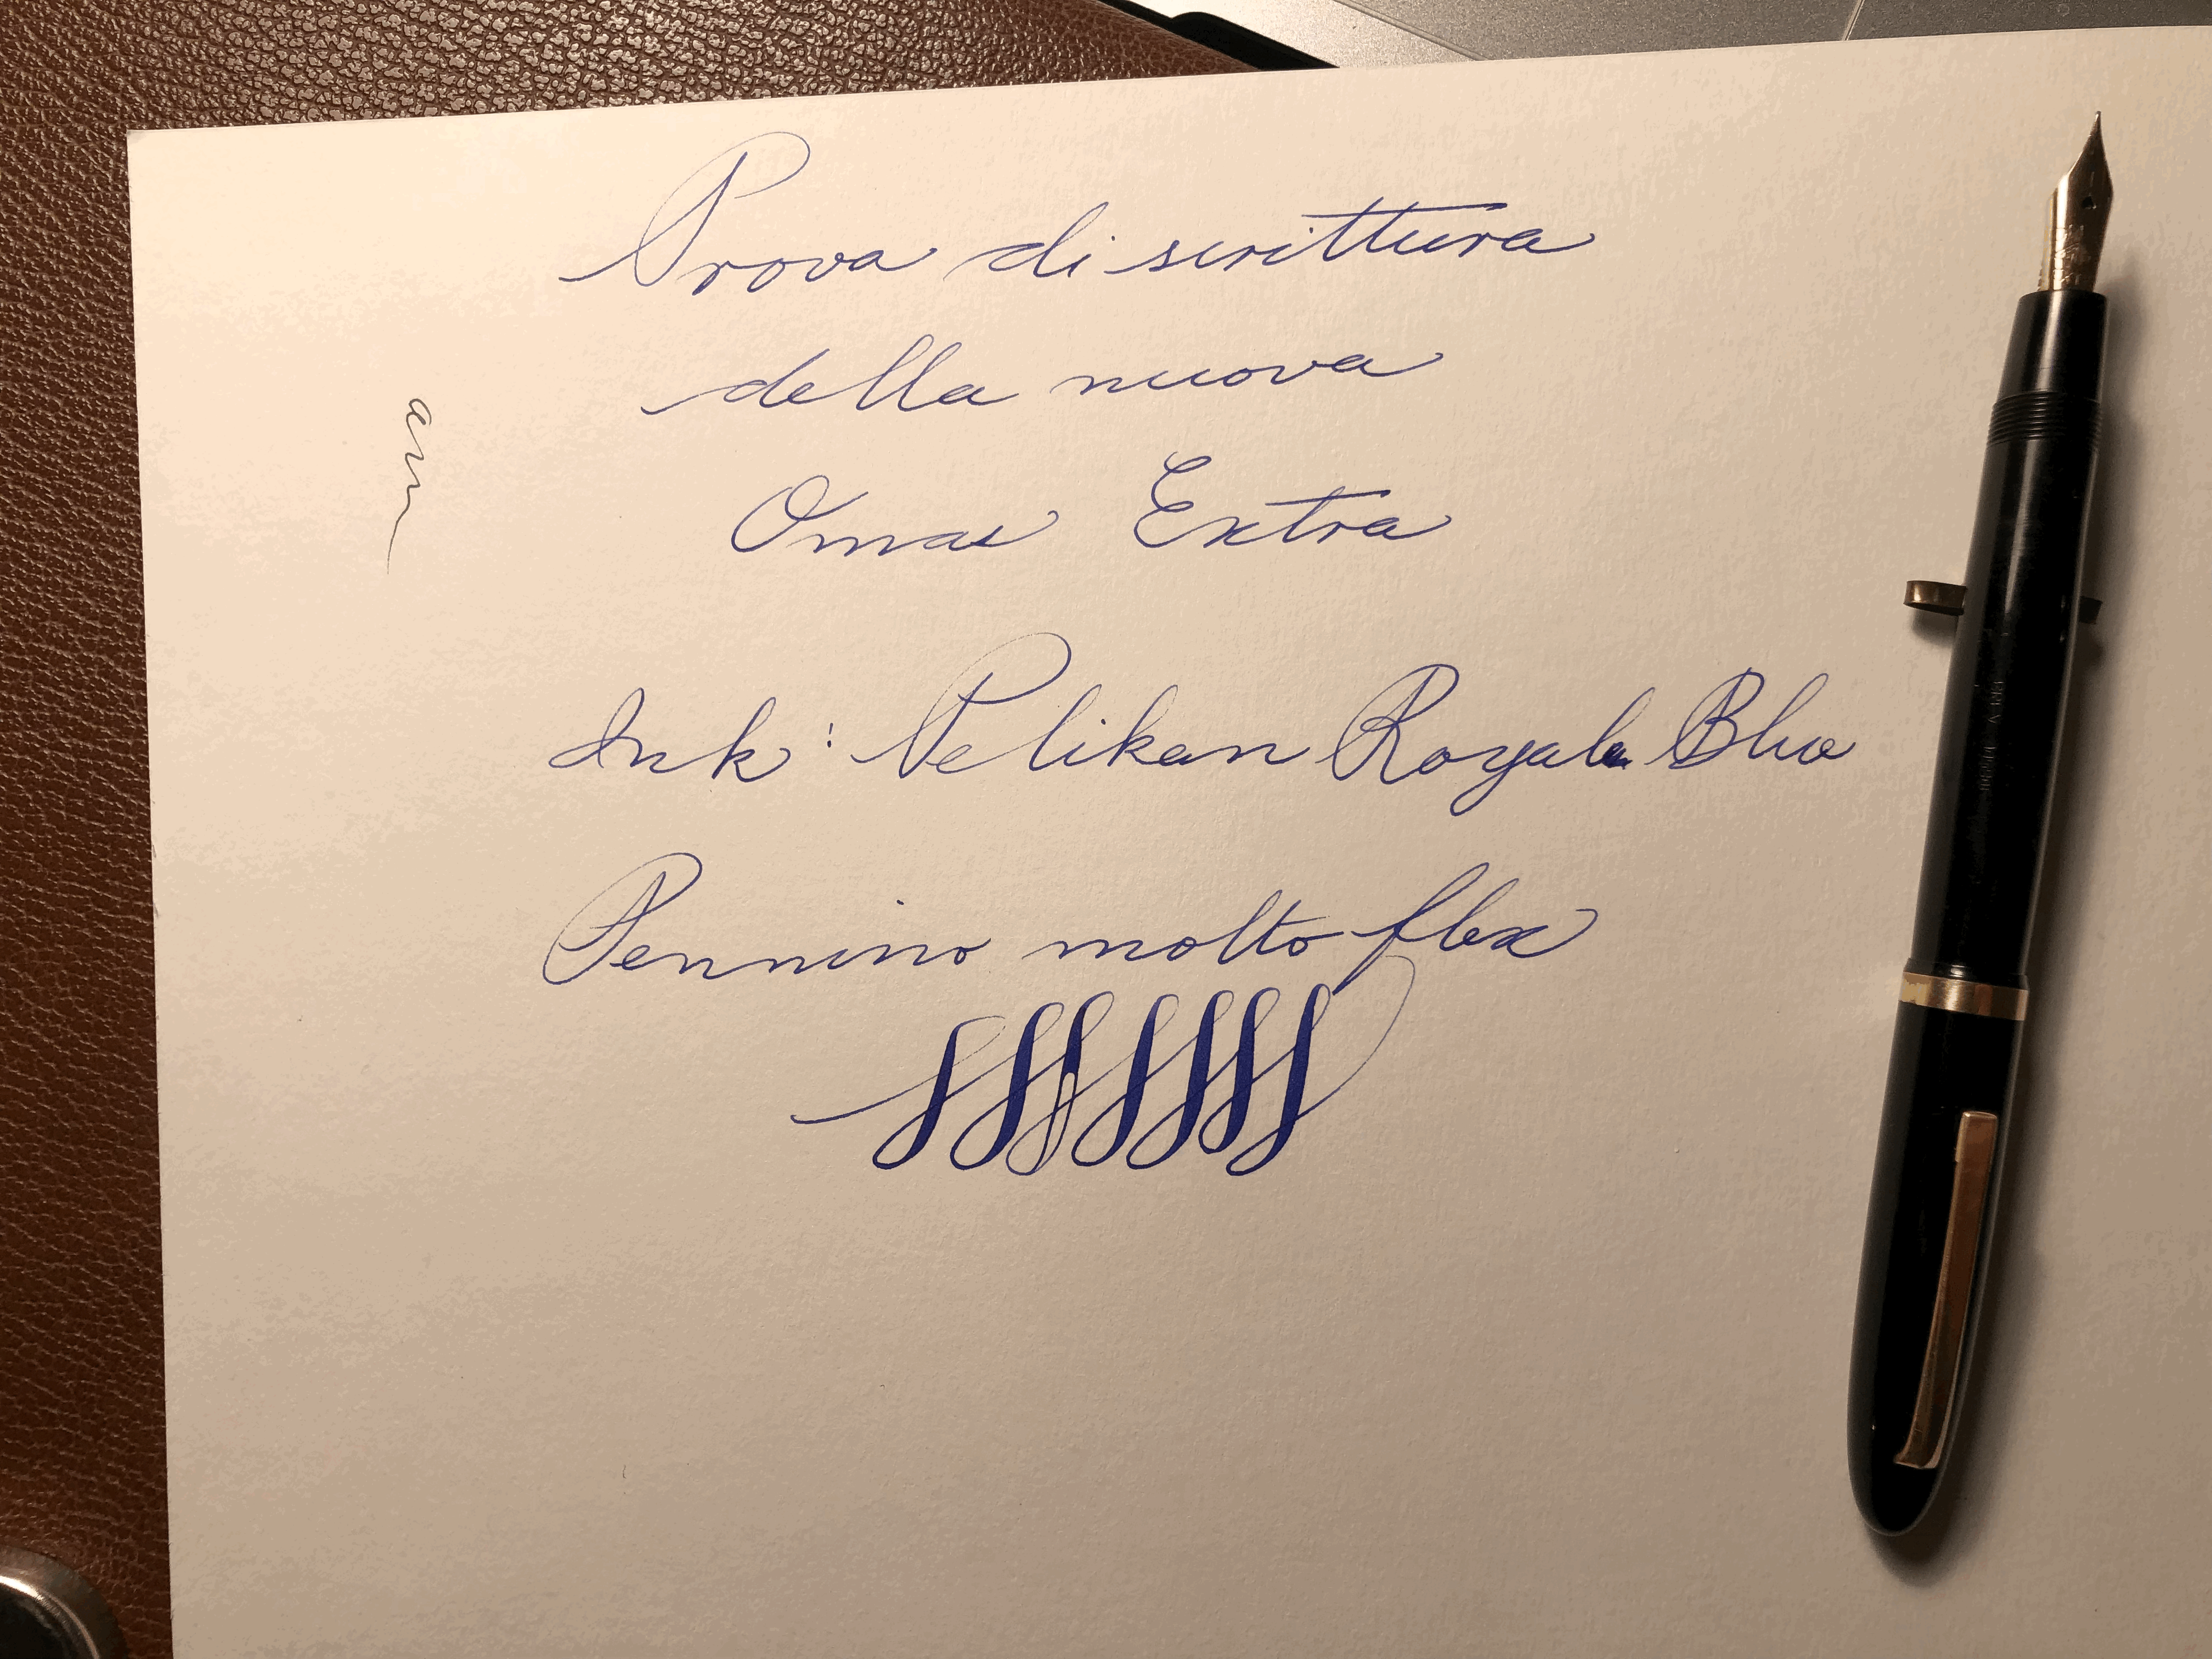 Prova di scrittura
della nuova
Omas Extra
Ink: Pelikan Royal Blue
Pennino molto flex